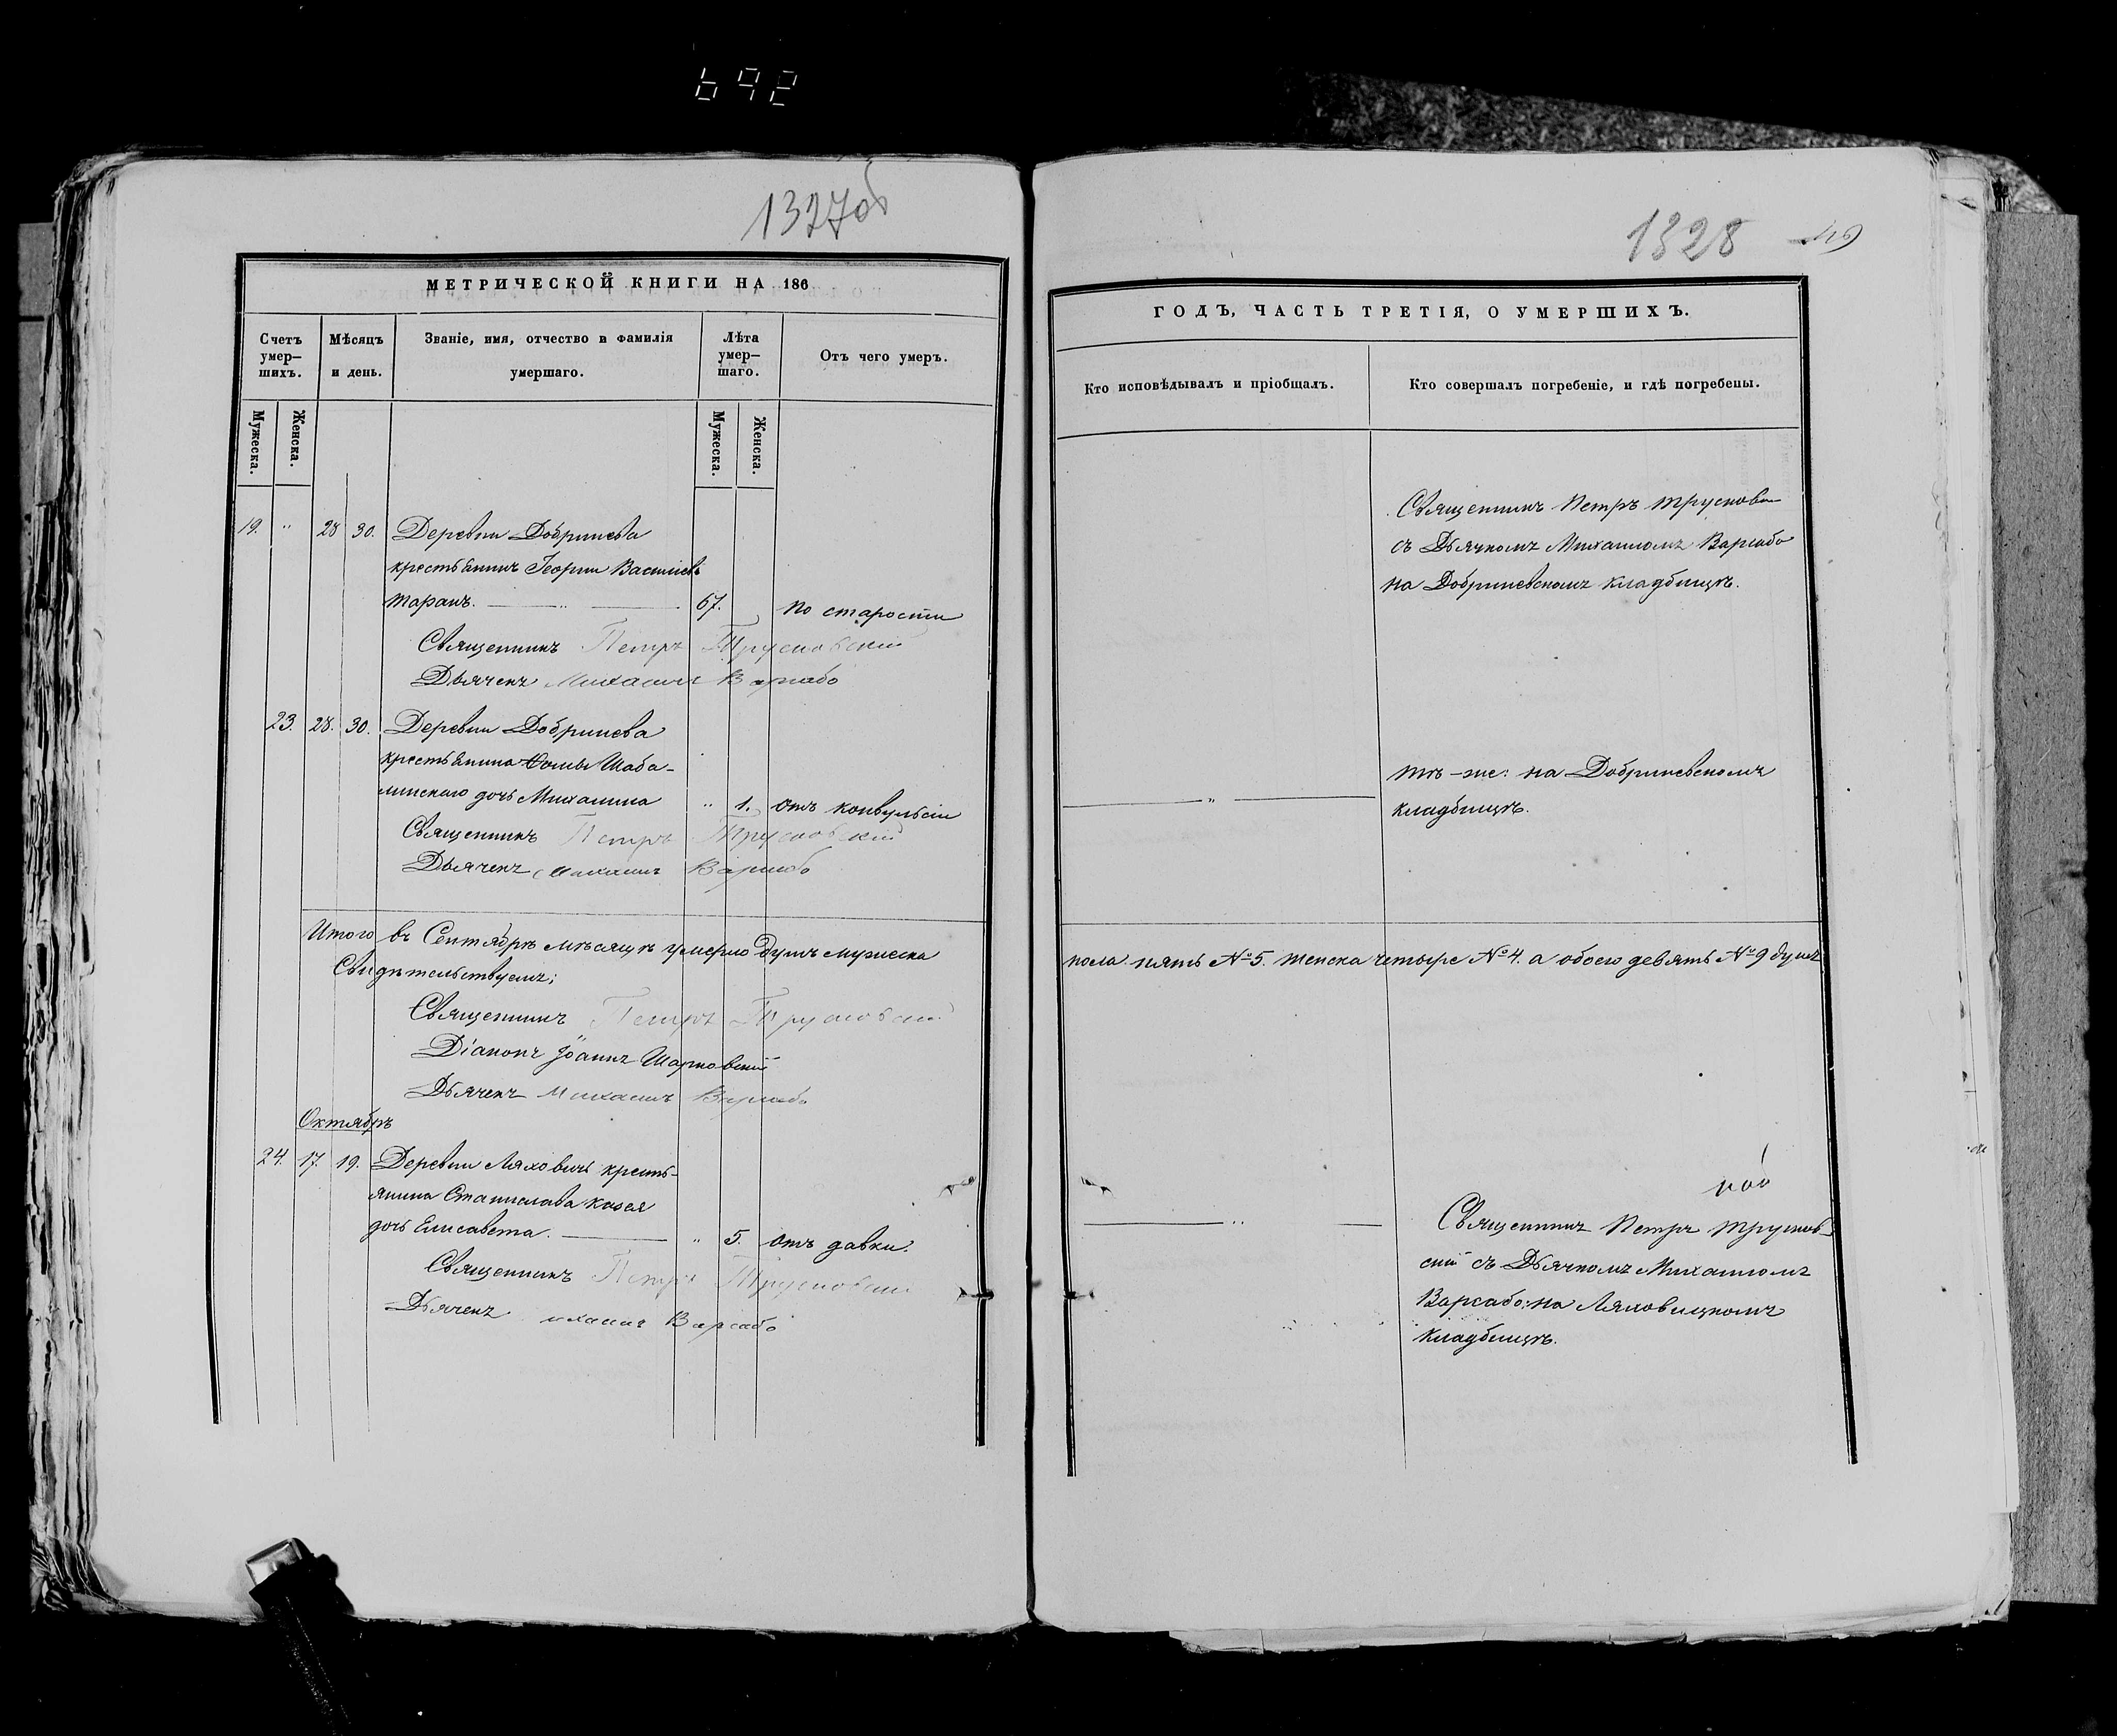 692
1327об
МЕТРИЧЕСКОЙ КНИГИ НА 186
Счетъ умер– шихъ.
Мѣсяцъ и день.
Званіе, имя, отчество и фамилія умершаго.
Лѣта умер– шаго.
Отъ чего умеръ.
Мужеска.
Женска.
Мужеска.
Женска.
19. " 28 30. Деревни Добринева
крестьянинъ Георгий Василіевъ
Таранъ. 67. по старости
Священникъ Петръ Трусковский
Дьячекъ Михаилъ Варсабо
23. 28. 30. Деревни Добринева
крестьянина Фомы Шаба-
линскаго дочь Михалина " 1. отъ конвульсіи
Священникъ Петръ Трусковский
Дьячекъ Михаилъ Варсабо
Итого въ Сентябрѣ мѣсяцѣ умерло душъ мужеска
Свидѣтельствуемъ;
Священникъ Петръ Трусковский
Діаконъ Іоаннъ Шарковский
Дьячекъ Михаилъ Варсабо
Октябрь
24. 17. 19. Деревни Ляховичъ кресть-
янина Станислава
дочь Елисавета. " 5. отъ давки.
Священникъ Петръ Трусковский
Дьячекъ Михаилъ Варсабо
1328
ГОДЪ, ЧАСТЬ ТРЕТІЯ, О УМЕРШИХЪ.
Кто исповѣдывалъ и пріобщалъ.
Кто совершалъ погребеніе, и гдѣ погребены.
Священникъ Петръ Трусковский
съ Дьячкомъ Михаиломъ Варсабо
на Добриневскомъ кладбищѣ.
тѣ-же: на Добриневскомъ
кладбищѣ.
пола пять №5. женска четыре №4. а обоего девять №9 душъ
Священникъ Петръ Трусков-
ский съ Дьячкомъ Михаиломъ
Варсабо: на Ляховицкомъ
кладбищѣ.